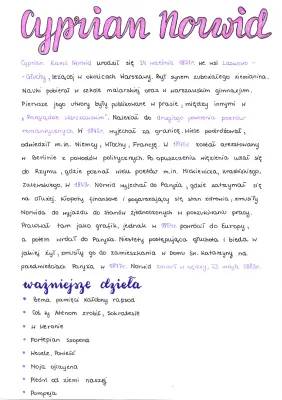 Cyprian Norwid
Cyprian Kamil Norwid urodził się 24 września 1821r. we wsi Laskowo -
- Głuchy, leżącej w okolicach Warszawy. Był synem zubożałego ziemianina.
Nauki pobierał w szkole malarskiej oraz w warszawskim gimnazjum.
Pierwsze jego utwory były publikowane w prasie, między innymi w
„Przeglądzie Warszawskim". Należał do drugiego pokolenia poetów
romantycznych. W 1842r. wyjechał za granicę. Wiele podróżował,
odwiedził m.in. Niemcy, Włochy, Francję. W 1846r. został aresztowany
w Berlinie z powodów politycznych. Po opuszczeniu więzienia udał się
do Rzymu, gdzie poznał wielu poetów m.in. Mickiewicza, Krasińskiego,
Zaleskiego. W 1849. Norwid wyjechał do Paryża, gdzie zatrzymał się
na dłużej. Kłopoty finansowe i pogarszający się stan zdrowia, zmusiły
Norwida do wyjazdu do Stanów Zjednoczonych w poszukiwaniu pracy.
Pracował tam jako grafik, jednak w 1854r. powrócił do Europy,
a potem wrócił do Paryża. Niestety postępująca głuchota i bieda w
jakiej żył, zmusiły go do zamieszkania w Domu Św. Kazimierza na
przedmieściach Paryża w 1877r. Norwid zmarł w nędzy, 23 maja 1883r.
ważniejsze dzieła
• Bema pamięci żałobny rapsod
• Coś ty Atenom zrobił, Sokratesie
• W Weronie
• Fortepian Szopena
• Wesele, Powieść
• Moja ojczyzna
• Pieśń od ziemi naszej
• Pompeja